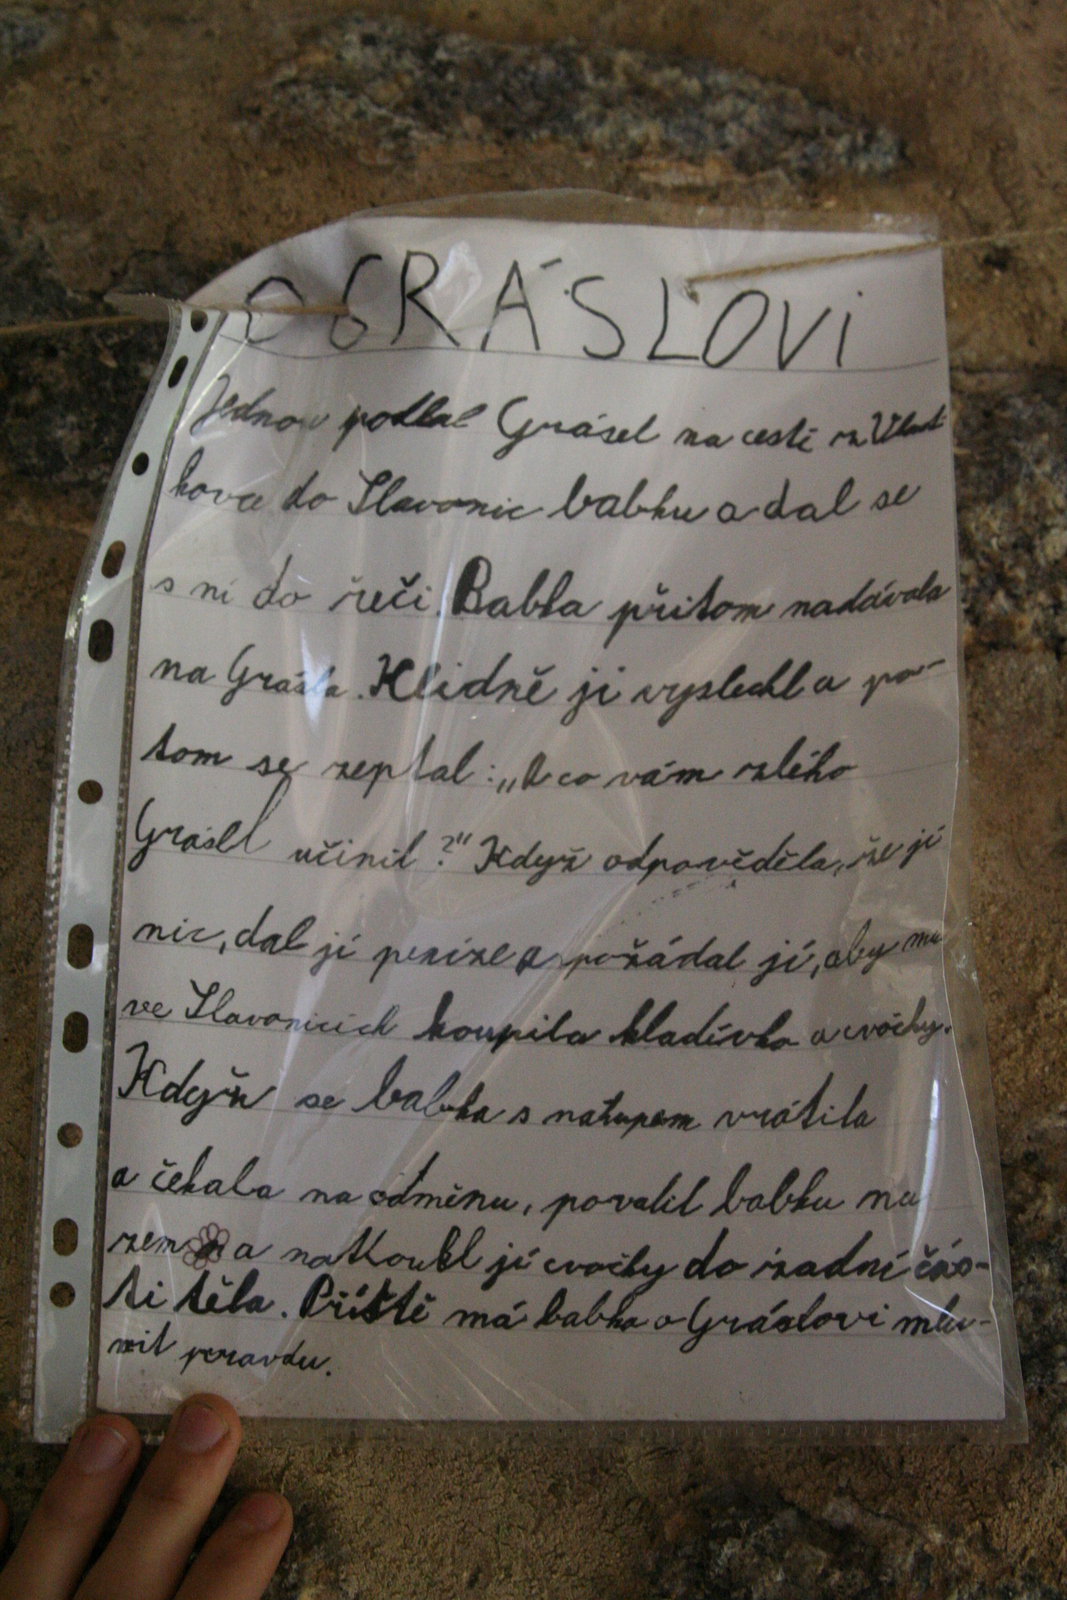 O GRÁSLOVI
Jednou potkal Grásel na cestě z Vlast
kovce do Slavonic babku a dal se
s ní do řeči. Babka přitom nadávala
na Grásla. Klidně ji vyslechl a po-
tom se zeptal: „A co vám zlého
Grásel učinil?" Když odpověděla, že jí
nic, dal jí peníze a požádal jí, aby mu
ve Slavonicích koupila kladívko a cvočky.
Když se babka s nákupem vrátila
a čekala na odměnu, povalil babku na
zem a natloukl jí cvočky do zadní čás-
ti těla. Příště má babka o Gráslovi mlu-
vit pravdu.